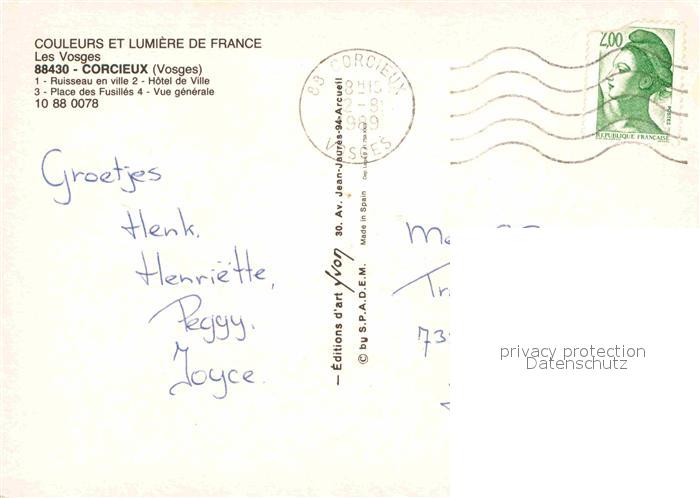 COULEURS ET LUMIÈRE DE FRANCE
Les Vosges
88430 - CORCIEUX (Vosges)
1 - Ruisseau en ville 2 - Hôtel de Ville
3 - Place des Fusillés 4 - Vue générale
10 88 0078
88 CORCIEUX
1989
VOSGES
2,00
POSTES
REPUBLIQUE FRANÇAISE
Groetjes
Henk.
Henriëtte,
Peggy.
Joyce.
— Éditions d'art Yvon 30. Av. Jean-Jaurès-94-Arcueil
© by S.P.A.D.E.M. Made in Spain
privacy protection
Datenschutz